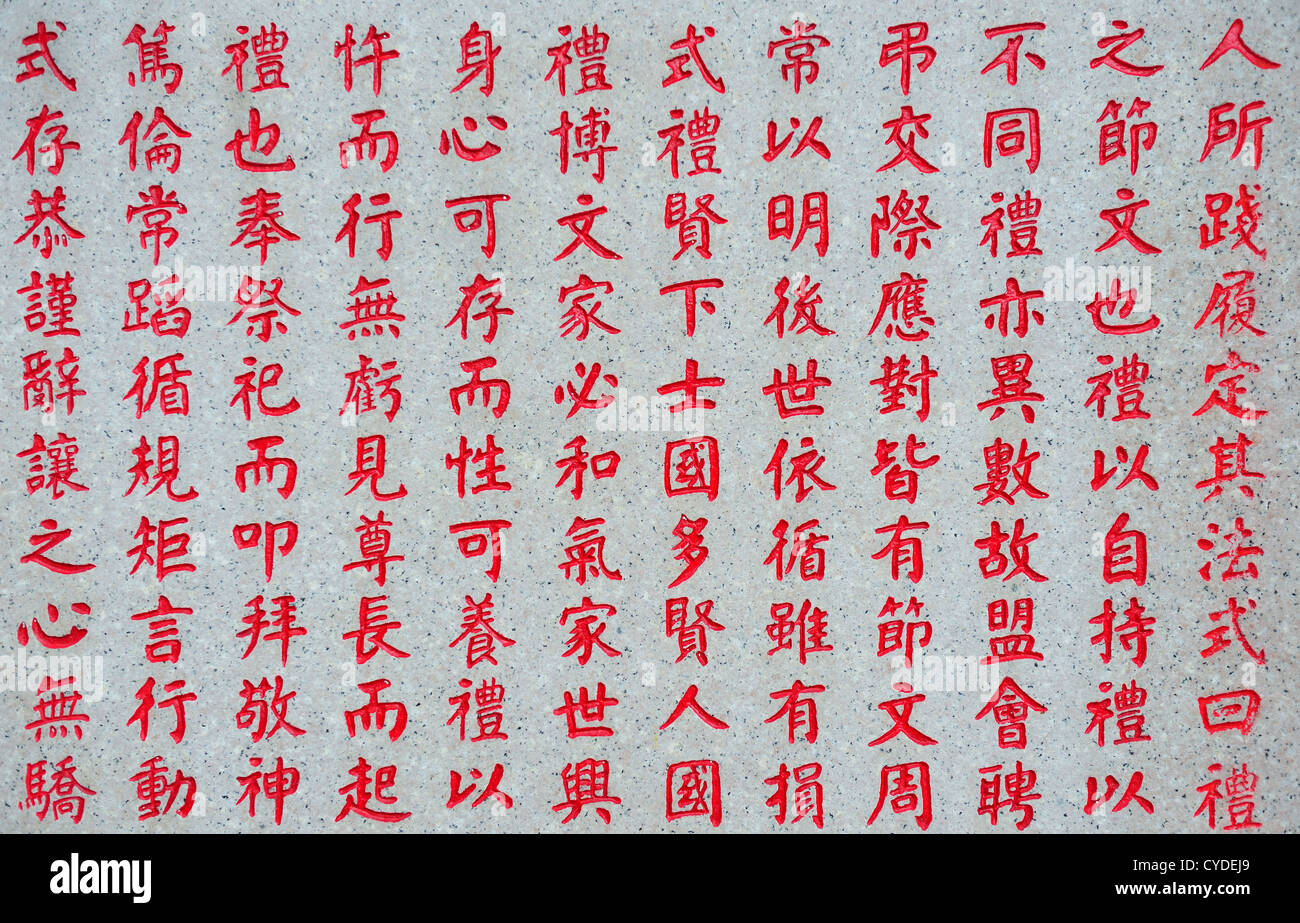 人所踐履定其法式曰禮
之節文也禮以自持禮以
不同禮亦異數故盟會聘
弔交際應對皆有節文周
常以明後世依循雖有損
式禮賢下士國多賢人國
禮博文家必和氣家世興
身心可存而性可養禮以
忤而行無虧見尊長而起
禮也奉祭祀而叩拜敬神
篤倫常蹈循規矩言行動
式存恭謹辭讓之心無驕
alamy
alamy
Image ID: CYDEJ9
www.alamy.com